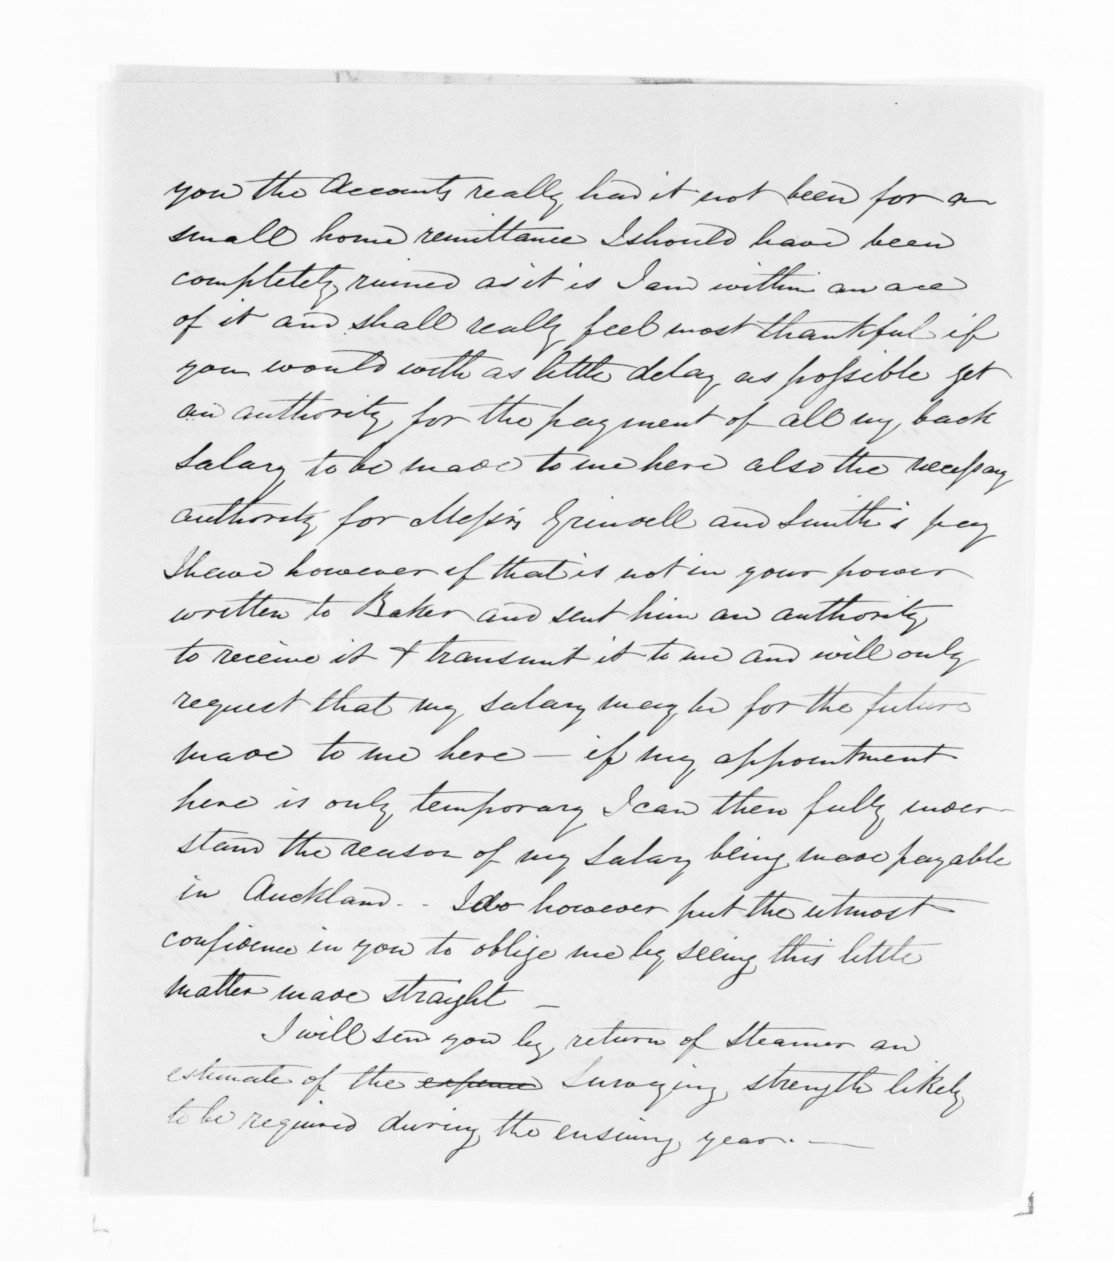 you the Accounts really had it not been for a
small home remittance I should have been
completely ruined as it is I am within an ace
of it and shall really feel most thankful if
you would with as little delay as possible get
an authority for the payment of all my back
salary to be made to me here also the necessary
authority for Messrs Grindell and Smith's pay
I have however if that is not in your power
written to Baker and sent him an authority
to receive it & transmit it to me and will only
request that my salary may be for the future
made to me here – if my appointment
here is only temporary I can then fully under-
stand the reason of my salary being made payable
in Auckland. . I do however put the utmost
confidence in you to oblige me by seeing this little
matter made straight –
I will send you by return of Steamer an
estimate of the expence Surveying strength likely
to be required during the ensuing year. —